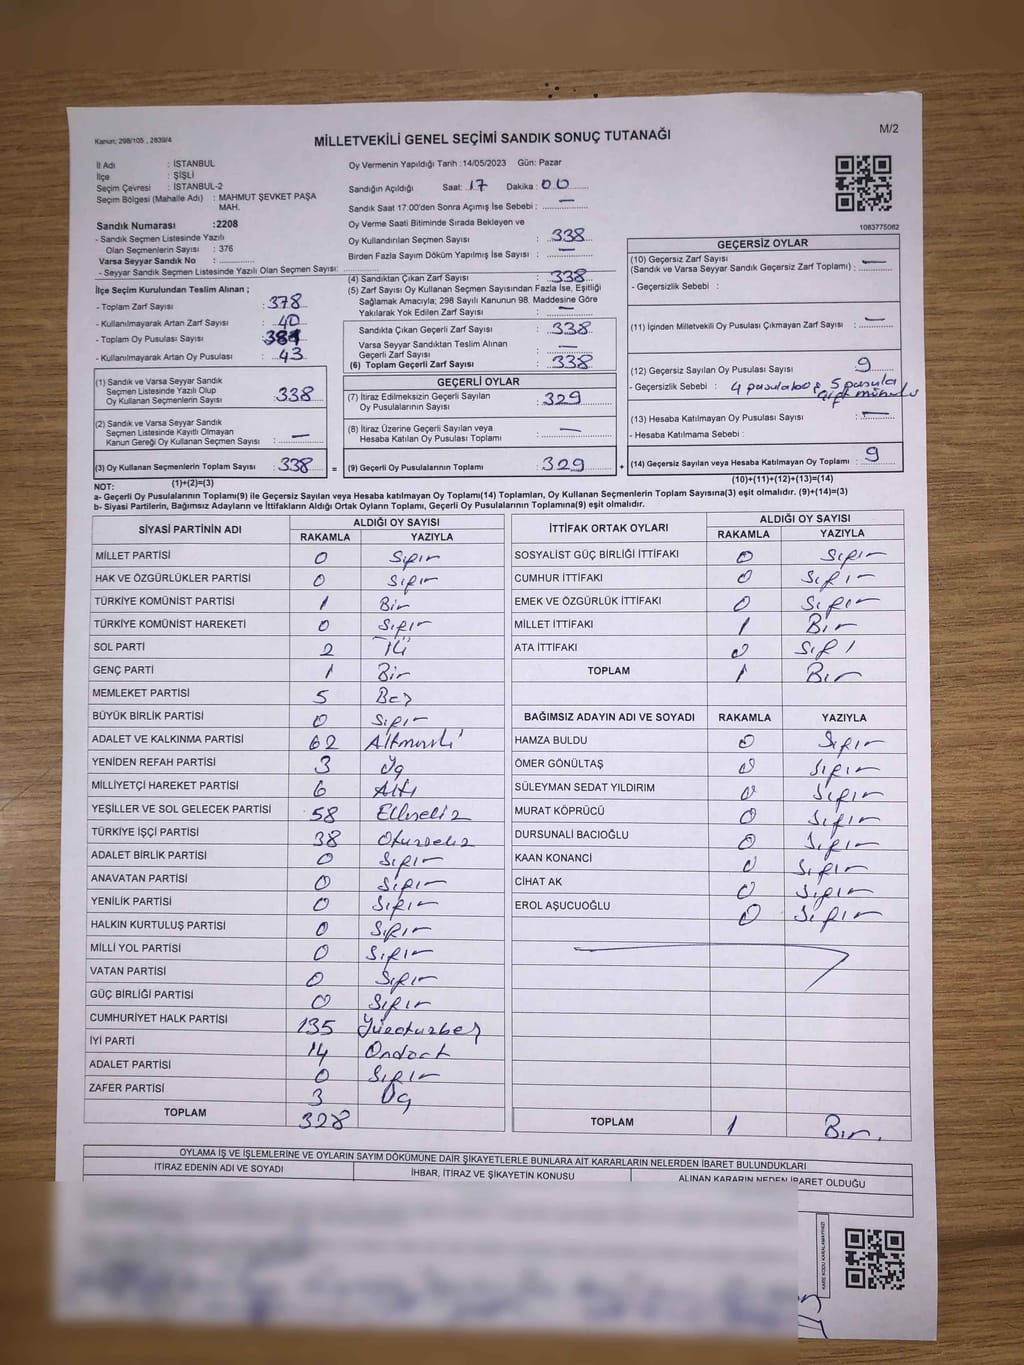 Kanun; 298/105 , 2839/4
MİLLETVEKİLİ GENEL SEÇİMİ SANDIK SONUÇ TUTANAĞI
M/2
İl Adı : İSTANBUL
İlçe : ŞİŞLİ
Seçim Çevresi : İSTANBUL-2
Seçim Bölgesi (Mahalle Adı) : MAHMUT ŞEVKET PAŞA MAH.
Sandık Numarası :2208
- Sandık Seçmen Listesinde Yazılı Olan Seçmenlerin Sayısı : 376
Varsa Seyyar Sandık No :
- Seyyar Sandık Seçmen Listesinde Yazılı Olan Seçmen Sayısı:
İlçe Seçim Kurulundan Teslim Alınan ;
- Toplam Zarf Sayısı : 378
- Kullanılmayarak Artan Zarf Sayısı : 40
- Toplam Oy Pusulası Sayısı : 381
- Kullanılmayarak Artan Oy Pusulası : 43
(1) Sandık ve Varsa Seyyar Sandık Seçmen Listesinde Yazılı Olup Oy Kullanan Seçmenlerin Sayısı : 338
(2) Sandık ve Varsa Seyyar Sandık Seçmen Listesinde Kayıtlı Olmayan Kanun Gereği Oy Kullanan Seçmen Sayısı : —
(3) Oy Kullanan Seçmenlerin Toplam Sayısı : 338 =
(1)+(2)=(3)
Oy Vermenin Yapıldığı Tarih : 14/05/2023 Gün: Pazar
Sandığın Açıldığı Saat: 17 Dakika : 00
Sandık Saat 17:00'den Sonra Açımış İse Sebebi : —
Oy Verme Saati Bitiminde Sırada Bekleyen ve
Oy Kullandırılan Seçmen Sayısı : 338
Birden Fazla Sayım Döküm Yapılmış İse Sayısı : —
(4) Sandıktan Çıkan Zarf Sayısı : 338
(5) Zarf Sayısı Oy Kullanan Seçmen Sayısından Fazla İse, Eşitliği
Sağlamak Amacıyla; 298 Sayılı Kanunun 98. Maddesine Göre
Yakılarak Yok Edilen Zarf Sayısı : —
Sandıkta Çıkan Geçerli Zarf Sayısı : 338
Varsa Seyyar Sandıktan Teslim Alınan Geçerli Zarf Sayısı : —
(6) Toplam Geçerli Zarf Sayısı : 338
GEÇERLİ OYLAR
(7) İtiraz Edilmeksizin Geçerli Sayılan Oy Pusulalarının Sayısı : 329
(8) İtiraz Üzerine Geçerli Sayılan veya Hesaba Katılan Oy Pusulası Toplamı : —
(9) Geçerli Oy Pusulalarının Toplamı : 329 +
1083775062
GEÇERSİZ OYLAR
(10) Geçersiz Zarf Sayısı
(Sandık ve Varsa Seyyar Sandık Geçersiz Zarf Toplamı) : —
- Geçersizlik Sebebi :
(11) İçinden Milletvekili Oy Pusulası Çıkmayan Zarf Sayısı : —
(12) Geçersiz Sayılan Oy Pusulası Sayısı : 9
- Geçersizlik Sebebi : 4 pusula boş 5 pusula
çift mühürlü
(13) Hesaba Katılmayan Oy Pusulası Sayısı : —
- Hesaba Katılmama Sebebi :
(14) Geçersiz Sayılan veya Hesaba Katılmayan Oy Toplamı : 9
(10)+(11)+(12)+(13)=(14)
NOT:
a- Geçerli Oy Pusulalarının Toplamı(9) ile Geçersiz Sayılan veya Hesaba katılmayan Oy Toplamı(14) Toplamları, Oy Kullanan Seçmenlerin Toplam Sayısına(3) eşit olmalıdır. (9)+(14)=(3)
b- Siyasi Partilerin, Bağımsız Adayların ve İttifakların Aldığı Ortak Oyların Toplamı, Geçerli Oy Pusulalarının Toplamına(9) eşit olmalıdır.
SİYASİ PARTİNİN ADI ALDIĞI OY SAYISI
RAKAMLA YAZIYLA
MİLLET PARTİSİ 0 Sıfır
HAK VE ÖZGÜRLÜKLER PARTİSİ 0 Sıfır
TÜRKİYE KOMÜNİST PARTİSİ 1 Bir
TÜRKİYE KOMÜNİST HAREKETİ 0 Sıfır
SOL PARTİ 2 İki
GENÇ PARTİ 1 Bir
MEMLEKET PARTİSİ 5 Beş
BÜYÜK BİRLİK PARTİSİ 0 Sıfır
ADALET VE KALKINMA PARTİSİ 62 Altmışiki
YENİDEN REFAH PARTİSİ 3 Üç
MİLLİYETÇİ HAREKET PARTİSİ 6 Altı
YEŞİLLER VE SOL GELECEK PARTİSİ 58 Ellisekiz
TÜRKİYE İŞÇİ PARTİSİ 38 Otuzsekiz
ADALET BİRLİK PARTİSİ 0 Sıfır
ANAVATAN PARTİSİ 0 Sıfır
YENİLİK PARTİSİ 0 Sıfır
HALKIN KURTULUŞ PARTİSİ 0 Sıfır
MİLLİ YOL PARTİSİ 0 Sıfır
VATAN PARTİSİ 0 Sıfır
GÜÇ BİRLİĞİ PARTİSİ 0 Sıfır
CUMHURİYET HALK PARTİSİ 135 Yüzotuzbeş
İYİ PARTİ 14 Ondört
ADALET PARTİSİ 0 Sıfır
ZAFER PARTİSİ 3 Üç
TOPLAM 328
İTTİFAK ORTAK OYLARI ALDIĞI OY SAYISI
RAKAMLA YAZIYLA
SOSYALİST GÜÇ BİRLİĞİ İTTİFAKI 0 Sıfır
CUMHUR İTTİFAKI 0 Sıfır
EMEK VE ÖZGÜRLÜK İTTİFAKI 0 Sıfır
MİLLET İTTİFAKI 1 Bir
ATA İTTİFAKI 0 Sıfı
TOPLAM 1 Bir
BAĞIMSIZ ADAYIN ADI VE SOYADI RAKAMLA YAZIYLA
HAMZA BULDU 0 Sıfır
ÖMER GÖNÜLTAŞ 0 Sıfır
SÜLEYMAN SEDAT YILDIRIM 0 Sıfır
MURAT KÖPRÜCÜ 0 Sıfır
DURSUNALİ BACIOĞLU 0 Sıfır
KAAN KONANCİ 0 Sıfır
CİHAT AK 0 Sıfır
EROL AŞUCUOĞLU 0 Sıfır
TOPLAM 1 Bir.
OYLAMA İŞ VE İŞLEMLERİNE VE OYLARIN SAYIM DÖKÜMÜNE DAİR ŞİKAYETLERLE BUNLARA AİT KARARLARIN NELERDEN İBARET BULUNDUKLARI
İTİRAZ EDENİN ADI VE SOYADI İHBAR, İTİRAZ VE ŞİKAYETİN KONUSU ALINAN KARARIN NEDEN İBARET OLDUĞU
KARE KODU KARALAMAYINIZ!